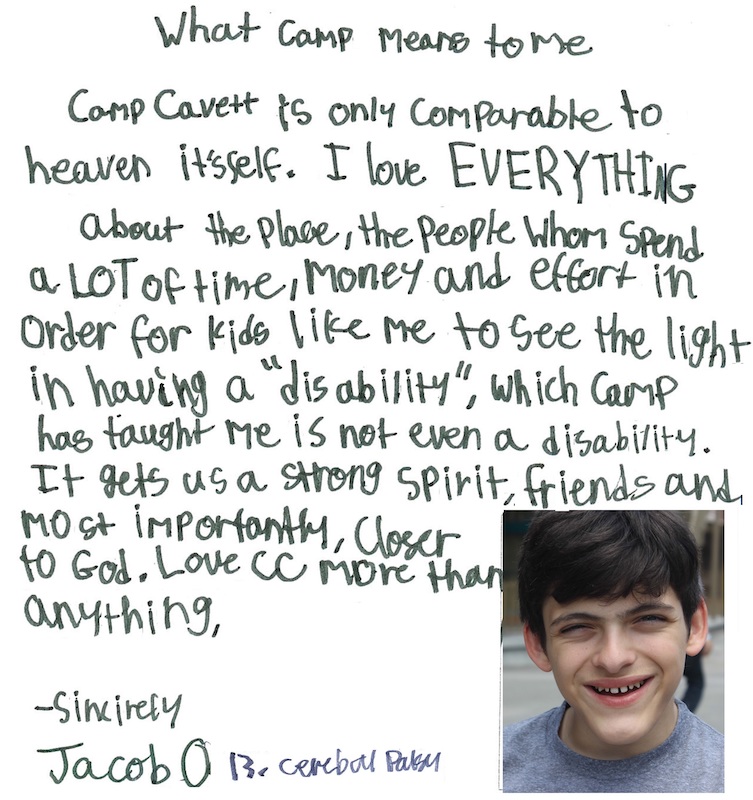 What Camp Means to me
Camp Cavett is only comparable to
heaven it'sself. I love EVERYTHING
about the place, the people whom spend
a LOT of time, money and effort in
order for kids like me to see the light
in having a "disability", which camp
has taught me is not even a disability.
It gets us a strong spirit, friends and,
most importantly, closer
to God. Love CC more than
anything,
-Sincirely
Jacob O 13. cerebral Palsy